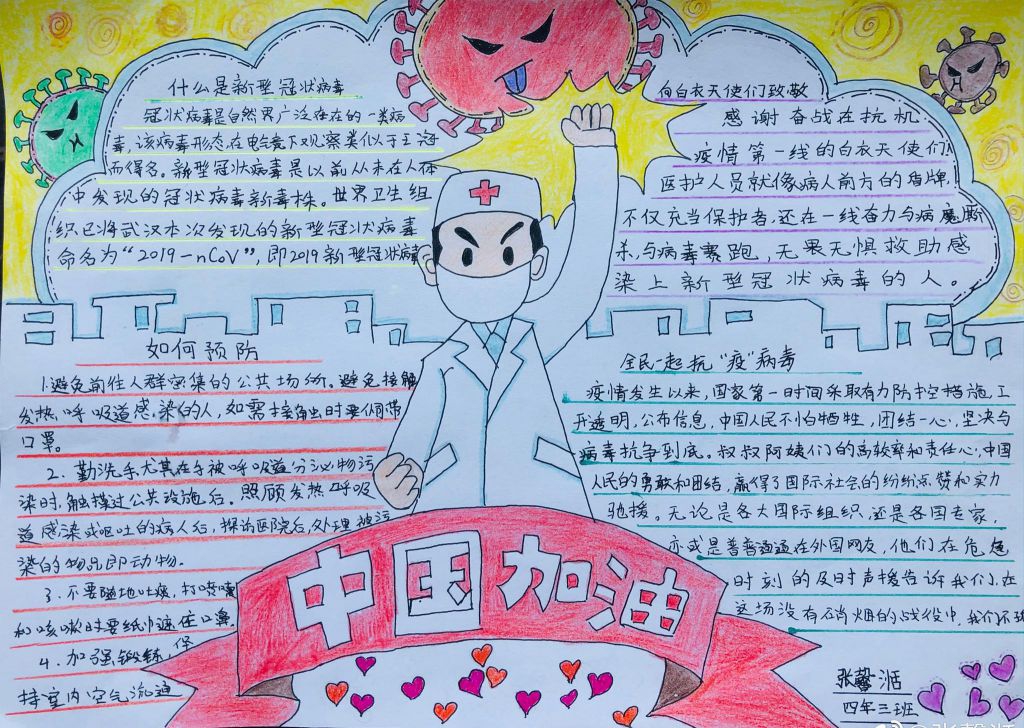 什么是新型冠状病毒
冠状病毒是自然界广泛存在的一类病
毒,该病毒形态在电镜下观察类似于王冠
而得名。新型冠状病毒是以前从未在人体
中发现的冠状病毒新毒株。世界卫生组
织已将武汉本次发现的新型冠状病毒
命名为“2019-nCoV”,即2019新型冠状病毒
向白衣天使们致敬
感谢奋战在抗机
疫情第一线的白衣天使们
医护人员就像病人前方的盾牌,
不仅充当保护者,还在一线奋力与病魔厮
杀,与病毒赛跑,无畏无惧救助感
染上新型冠状病毒的人。
如何预防
1.避免前往人群密集的公共场所。避免接触
发热呼吸道感染的人,如需接触时要佩带
口罩。
2、勤洗手尤其在手被呼吸道分泌物污
染时,触摸过公共设施后。照顾发热呼吸
道感染或呕吐的病人后,探访医院后,处理被污
染的物品即动物。
3、不要随地吐痰,打喷嚏
和咳嗽时要纸巾遮住口鼻。
4、加强锻练,保
持室内空气流通
全民一起抗“疫”病毒
疫情发生以来,国家第一时间采取有力防控措施,工
开透明,公布信息,中国人民不怕牺牲,团结一心,坚决与
病毒抗争到底。叔叔阿姨们的高效率和责任心,中国
人民的勇敢和团结,赢得了国际社会的纷纷点赞和实力
驰援。无论是各大国际组织,还是各国专家,
亦或是普普通通在外国网友,他们在危急
时刻的及时声援告诉我们,在
这场没有硝烟的战役中,我们不
中国加油
张馨湉
四年三班